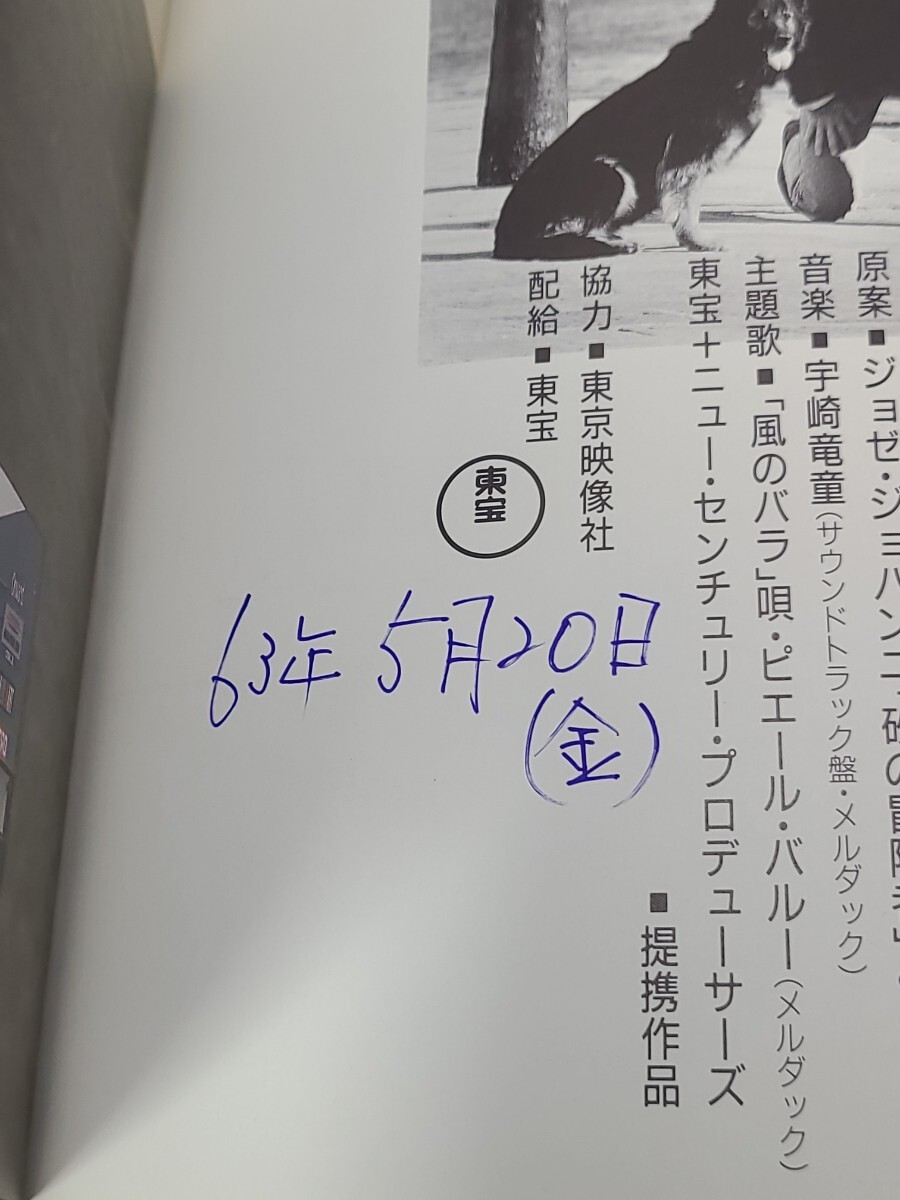 原案■ジョゼ・ジョバンニ
音楽■宇崎竜童(サウンドトラック盤・メルダック)
主題歌■「風のバラ」唄・ピエール・バルー(メルダック)
東宝+ニュー・センチュリー・プロデューサーズ
■提携作品
協力■東京映像社
配給■東宝
東宝
63年5月20日
(金)